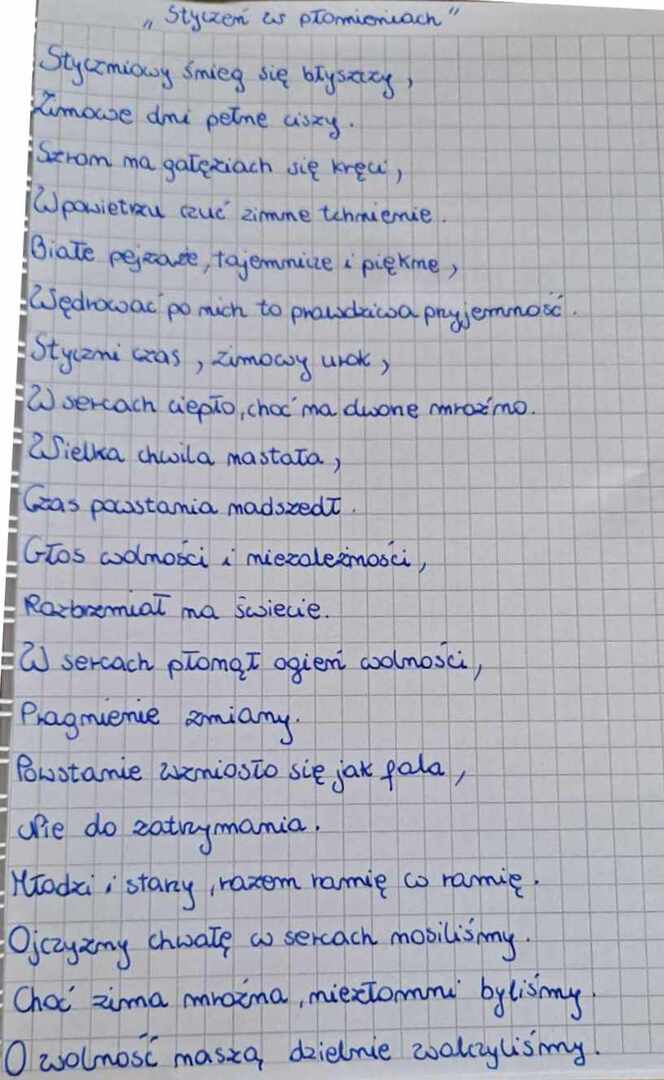 „Styczeń w płomieniach”
Styczniowy śnieg się błyszczy,
Zimowe dni pełne ciszy.
Szron na gałęziach się kręci,
W powietrzu czuć zimne tchnienie.
Białe pejzaże, tajemnicze i piękne,
Wędrować po nich to prawdziwa przyjemność.
Styczni czas, zimowy urok,
W sercach ciepło, choć na dwone mroźno.
Wielka chwila nastała,
Czas powstania nadszedł.
Głos wolności i niezależności,
Rozbrzmiał na świecie.
W sercach płonął ogień wolności,
Pragnienie zmiany.
Powstanie wzniosło się jak fala,
Nie do zatrzymania.
Młodzi i starzy, razem ramię w ramię.
Ojczyzny chwałę w sercach nosiliśmy.
Choć zima mroźna, niezłomni byliśmy.
O wolność naszą dzielnie walczyliśmy.